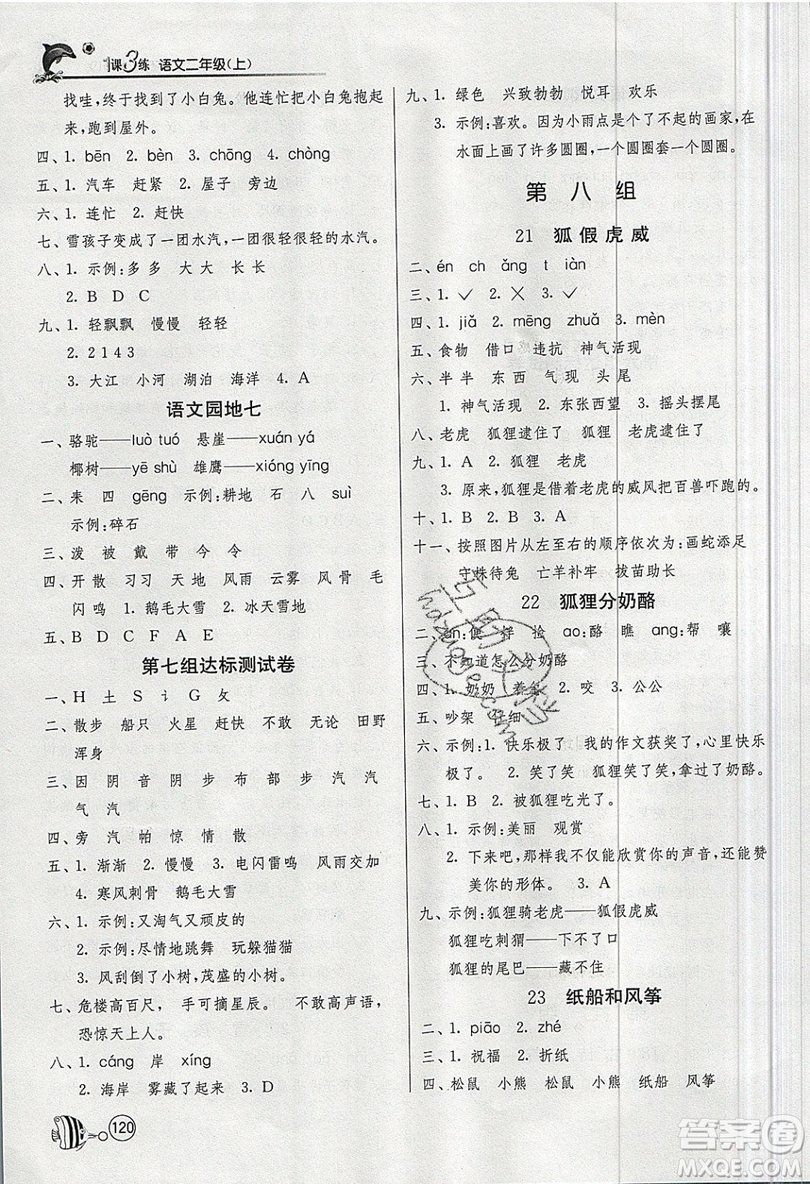 1课3练 语文二年级(上)
找哇,终于找到了小白兔。他连忙把小白兔抱起
来,跑到屋外。
四、1. bēn 2. bèn 3. chōng 4. chòng
五、1. 汽车 赶紧 2. 屋子 旁边
六、1. 连忙 2. 赶快
七、雪孩子变成了一团水汽,很轻很轻的水汽。
八、1. 示例:多多 大大 长长
2. B D C
九、1. 轻飘飘 慢慢 轻轻
2. 2 1 4 3
3. 大江 小河 湖泊 海洋 4. A
语文园地七
一、骆驼——luò tuó 悬崖——xuán yá
椰树——yē shù 雄鹰——xióng yīng
二、来 四 gēng 示例:耕地 石 八 suì
示例:碎石
三、泼 被 戴 带 今 令
四、开散 习习 天地 风雨 云雾 风骨 毛
闪鸣 1. 鹅毛大雪 2. 冰天雪地
五、B D C F A E
第七组达标测试卷
一、H 土 S 讠 G 攵
二、散步 船只 火星 赶快 不敢 无论 田野
浑身
三、因 阴 音 阴 步 布 部 步 汽 汽
气 汽
四、旁 汽 帕 惊 情 散
五、1. 渐渐 2. 慢慢 3. 电闪雷鸣 风雨交加
4. 寒风刺骨 鹅毛大雪
六、1. 示例:又淘气又顽皮的
2. 示例:尽情地跳舞 玩躲猫猫
3. 风刮倒了小树,茂盛的小树。
七、危楼高百尺, 手可摘星辰。 不敢高声语,
恐惊天上人。
八、1. cáng 岸 xíng
2. 海岸 雾藏了起来 3. D
120
九、1. 绿色 兴致勃勃 悦耳 欢乐
3. 示例:喜欢。因为小雨点是个了不起的画家,在
水面上画了许多圆圈,一个圆圈套一个圆圈。
第八组
21 狐假虎威
二、én ch ǎng t iàn
三、1. ✓ 2. ✕ 3. ✓
四、1. jiǎ 2. mēng zhuǎ 3. mèn
五、食物 借口 违抗 神气活现
六、半半 东西 气现 头尾
1. 神气活现 2. 东张西望 3. 摇头摆尾
八、老虎 狐狸逮住了 狐狸 老虎逮住了
九、1. A 2. 狐狸 老虎
3. 原来,狐狸是借着老虎的威风把百兽吓跑的。
十、1. B 2. B 3. A
十一、按照图片从左至右的顺序依次为:画蛇添足
守株待兔 亡羊补牢 拔苗助长
22 狐狸分奶酪
捡 ao:酪 瞧 ang:帮 嚷
三、不知道怎么分奶酪
四、1. 奶奶 2. 咬 3. 公公
五、吵架 仔细
六、示例:1. 快乐极了 我的作文获奖了,心里快乐
极了。 2. 笑了笑 狐狸笑了笑,拿过了奶酪。
七、1. B 2. 被狐狸吃光了。
八、1. 示例:美丽 观赏
2. 下来吧,那样我不仅能欣赏你的声音,还能赞
美你的形体。 3. A
九、示例:狐狸骑老虎——狐假虎威
狐狸吃刺猬——下不了口
狐狸的尾巴——藏不住
23 纸船和风筝
二、1. piāo 2. zhé
三、1. 祝福 2. 折纸
四、松鼠 小熊 松鼠 小熊 纸船 风筝
答案圈
MXQE.COM